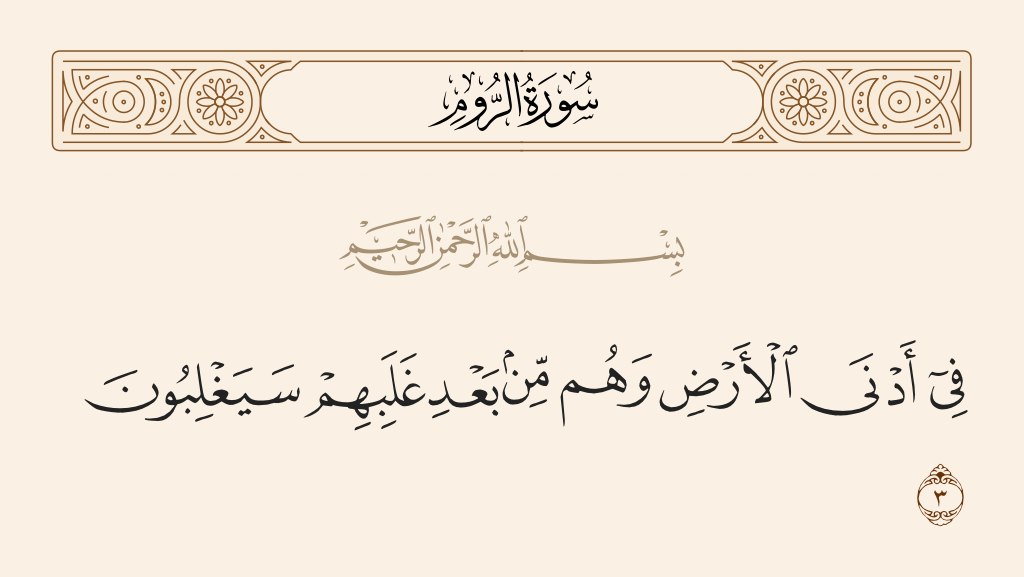 سُورَةُ الرُّومِ
بِسْمِ ٱللَّهِ ٱلرَّحْمَٰنِ ٱلرَّحِيمِ
فِىٓ أَدْنَى ٱلْأَرْضِ وَهُم مِّنۢ بَعْدِ غَلَبِهِمْ سَيَغْلِبُونَ
٣